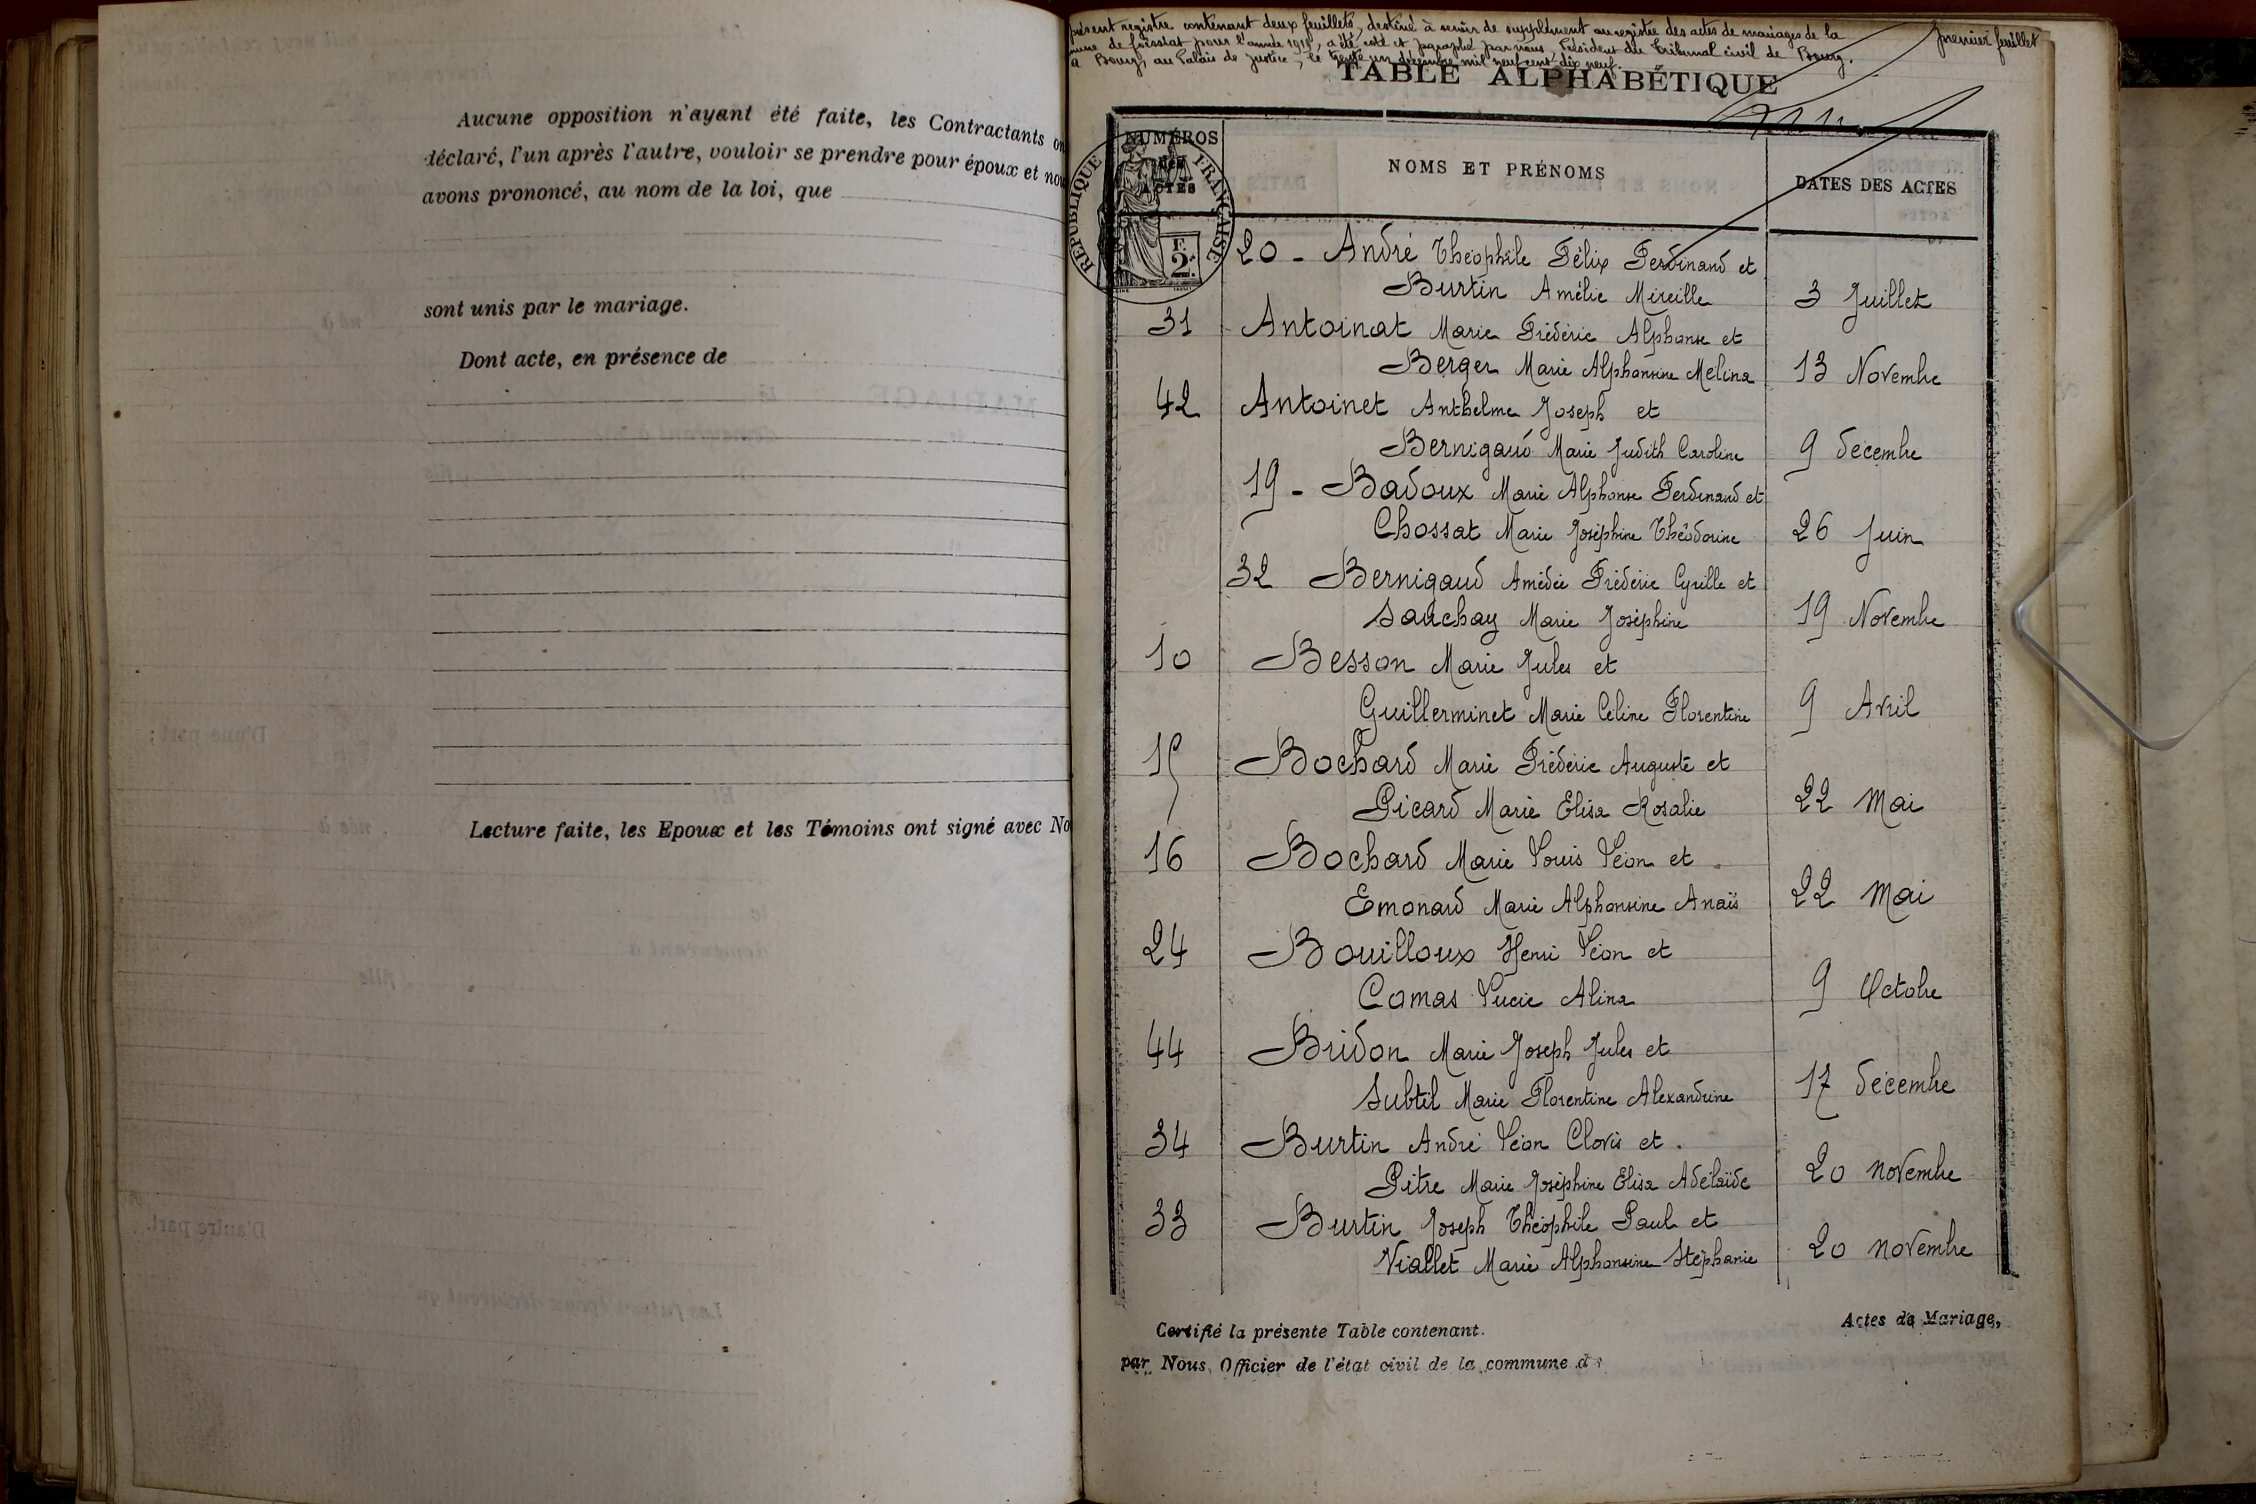 Aucune opposition n'ayant été faite, les Contractants on
déclaré, l'un après l'autre, vouloir se prendre pour époux et nou
avons prononcé, au nom de la loi, que
sont unis par le mariage.
Dont acte, en présence de
Lecture faite, les Epoux et les Témoins ont signé avec No
présent registre contenant deux feuillets, destiné à servir de supplément au registre des actes de mariages de la
mune de pour l'année 1919, a été coté et paraphé par nous, Président du Tribunal civil de Bourg.
à Bourg, au Palais de Justice, le trente un décembre mil neuf cent dix neuf.
premier feuillet
TABLE ALPHABÉTIQUE
NUMÉROS
DES
ACTES
NOMS ET PRÉNOMS
DATES DES ACTES
RÉPUBLIQUE FRANÇAISE
2F.
20 - André Théophile Félix Ferdinand et
Burtin Amélie Mireille 3 Juillet
31 Antoinat Marie Frédéric Alphonse et
Berger Marie Alphonsine Melina 13 Novembre
42 Antoinet Anthelme Joseph et
Bernigaud Marie Judith Caroline 9 décembre
19 - Badoux Marie Alphonse Ferdinand et
Chossat Marie Joséphine Théodorine 26 Juin
32 Bernigaud Amédée Frédéric Cyrille et
Sauchay Marie Joséphine 19 Novembre
10 Besson Marie Jules et
Guillerminet Marie Celine Florentine 9 Avril
15 Bochard Marie Frédéric Auguste et
Picard Marie Elisa Rosalie 22 Mai
16 Bochard Marie Louis Léon et
Emonard Marie Alphonsine Anaïs 22 Mai
24 Bouilloux Henri Léon et
Comas Lucie Alina 9 Octobre
44 Bridon Marie Joseph Jules et
Subtil Marie Florentine Alexandrine 17 décembre
34 Burtin André Léon Clovis et
Pitre Marie Joséphine Elisa Adélaïde 20 novembre
33 Burtin Joseph Théophile Paul et
Viallet Marie Alphonsine Stéphanie 20 novembre
Certifié la présente Table contenant. Actes de Mariage,
par Nous, Officier de l'état civil de la commune d